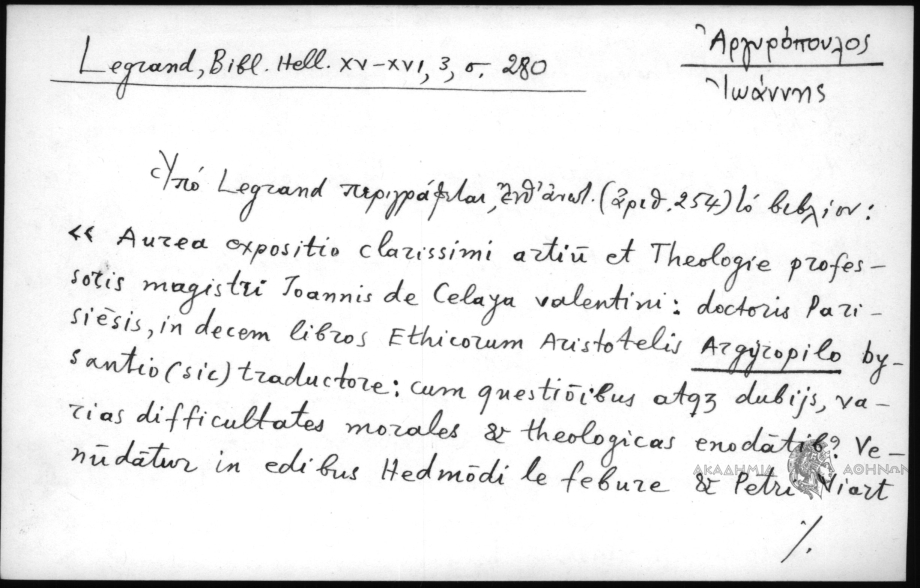 Legrand, Bibl. Hell. XV-XVI, 3, σ. 280
Ἀργυρόπουλος
Ἰωάννης
Ὑπό Legrand περιγράφεται, ἔνθ' ἀνωτ. (ἀριθ. 254) τό βιβλίον:
« Aurea expositio clarissimi artiū et Theologie profes-
soris magistri Joannis de Celaya valentini: doctoris Pari-
siēsis, in decem libros Ethicorum Aristotelis Argyropilo by-
santio (sic) traductore: cum questiōibus atqȝ dubijs, va-
rias difficultates morales & theologicas enodātibꝰ? Ve-
nūdātur in edibus Hedmōdi le febure & Petri Viart
ΑΚΑΔΗΜΙΑ ΑΘΗΝΩΝ
./.